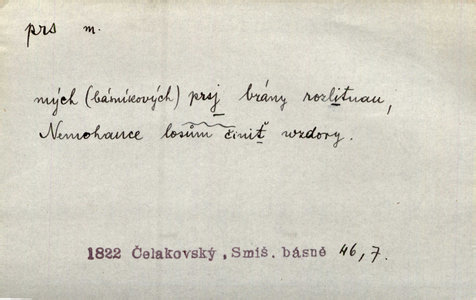 prs m.
mých (básníkových) prsj brány rozlitnau,
Nemohauce losům činiť wzdory.
1822 Čelakovský, Smiš. básně 46,7.